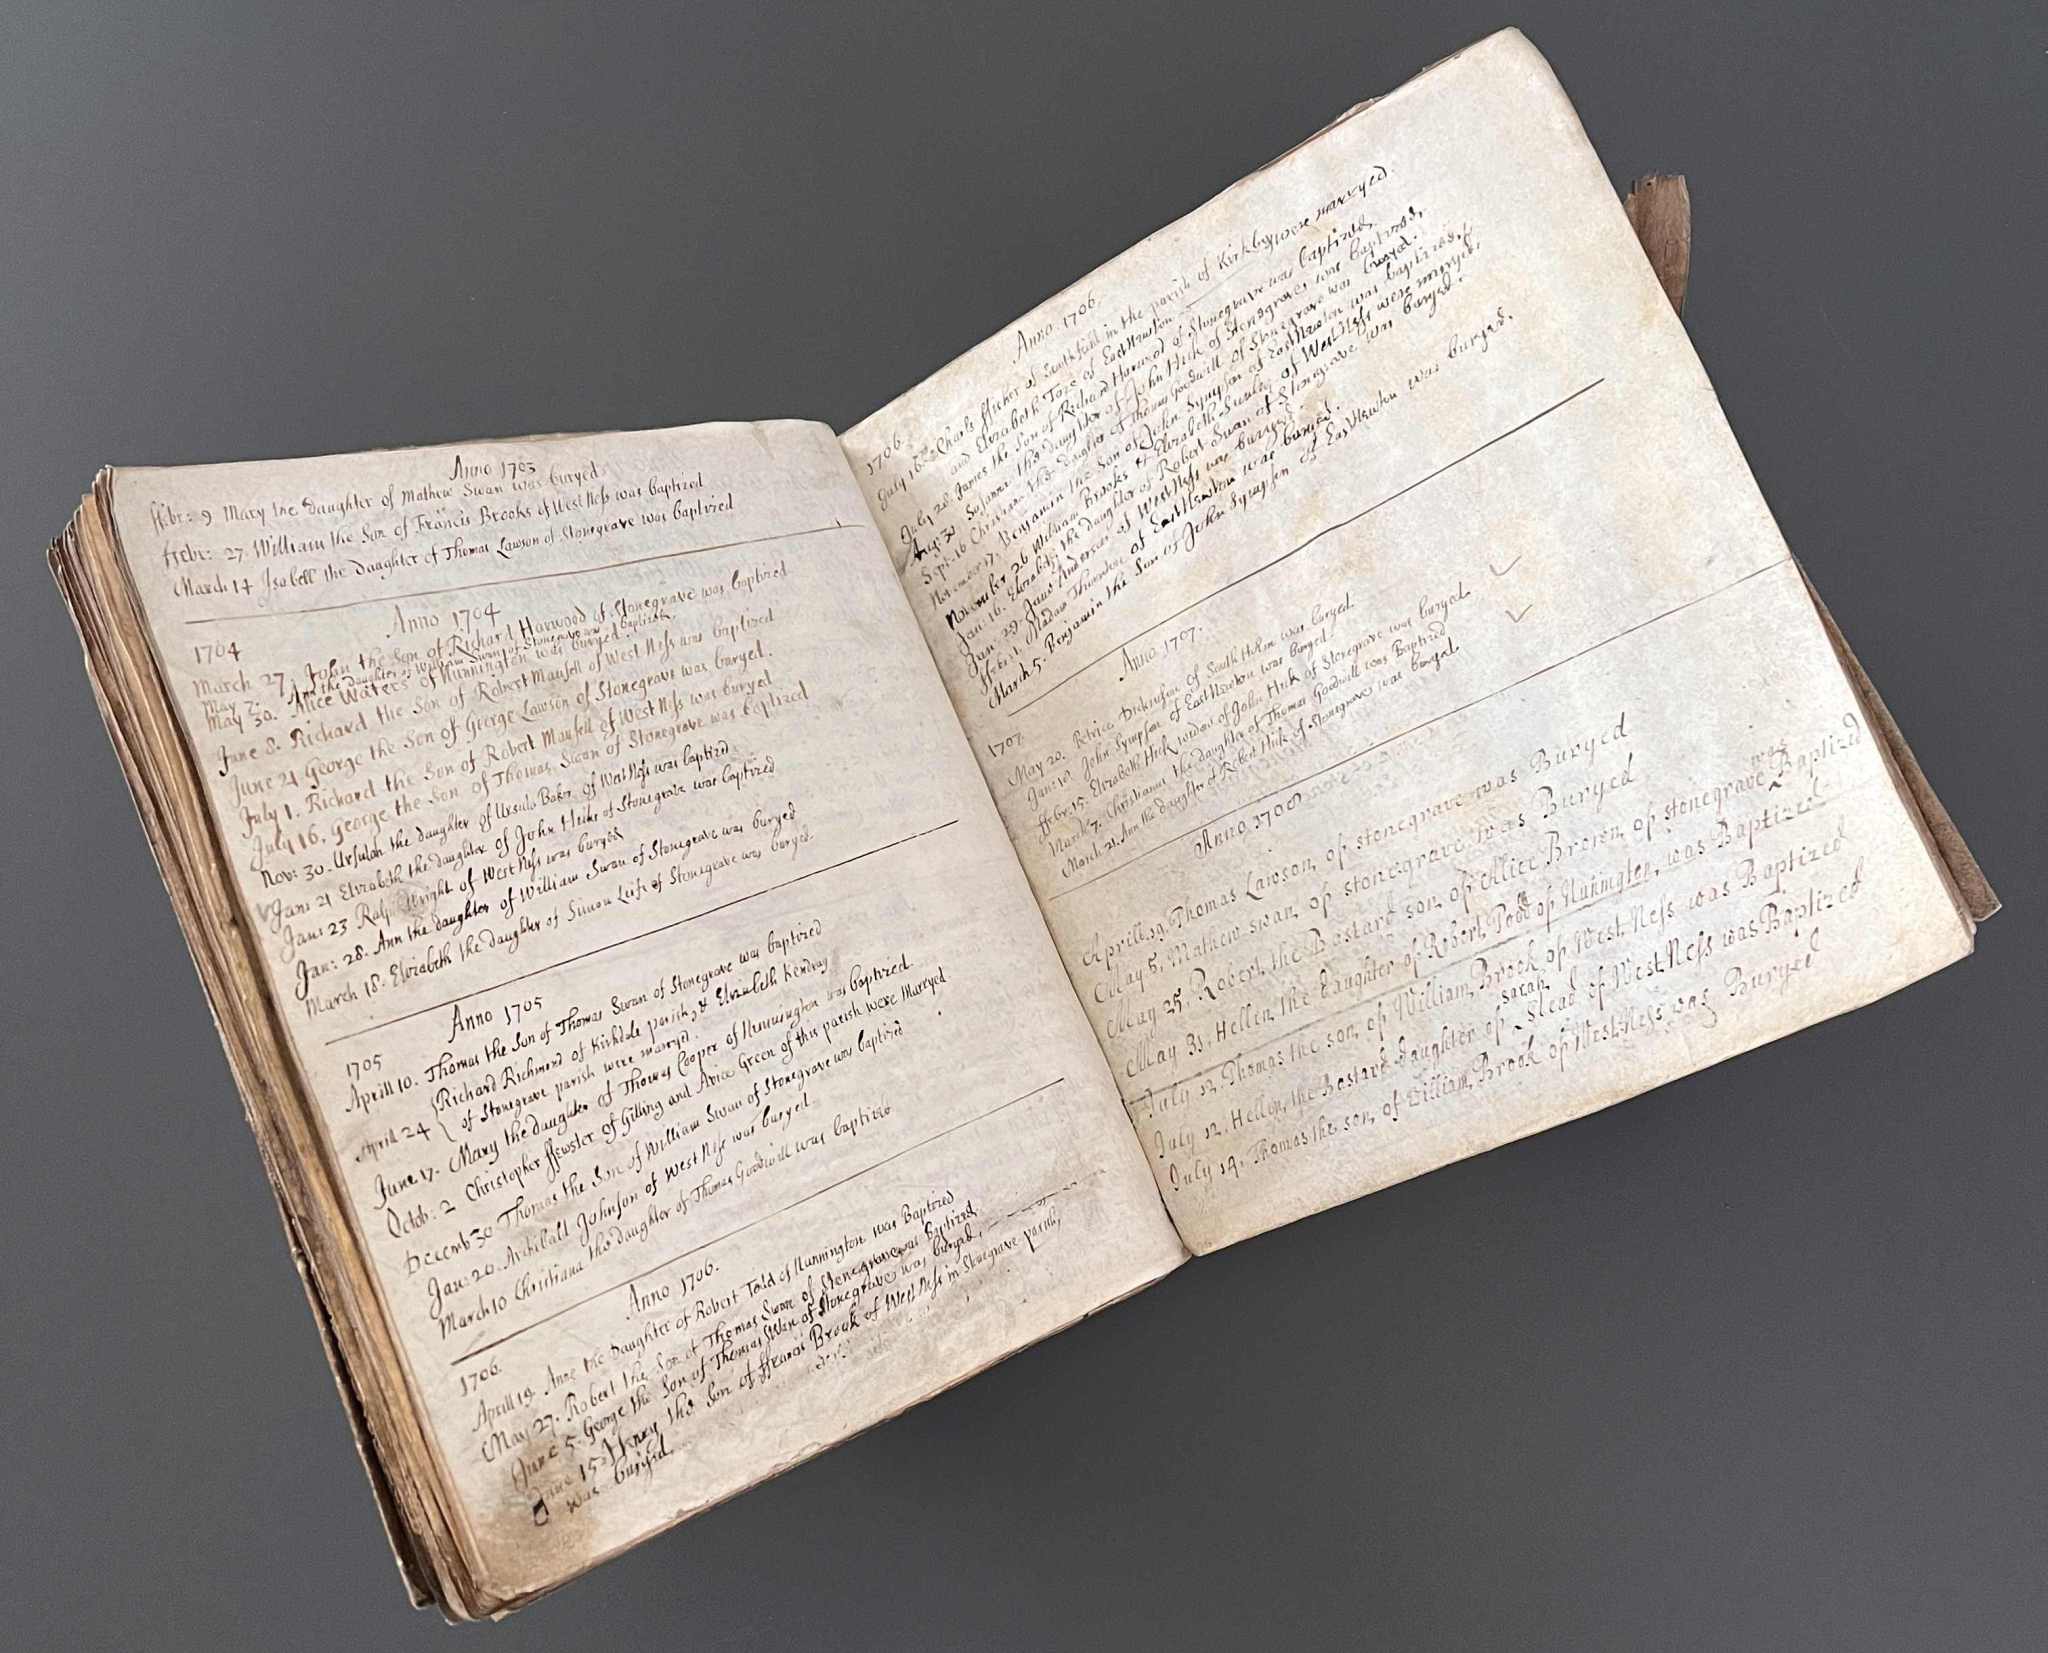 Anno 1703
ffebr: 9 Mary the daughter of Mathew Swan was buryed
ffebr: 27. William the Son of Francis Brooks of West Ness was baptized
March 14 Isabell the daughter of Thomas Lawson of Stonegrave was baptized
Anno 1704
1704
March 27. John the Son of Richard Harwood of Stonegrave was baptized
May 7. Ann the daughter of William Swan of Stonegrave was baptized.
May 30. Alice Waters of Nunnington was buryed.
June 8. Richard the Son of Robert Mansell of West Ness was baptized
June 21 George the Son of George Lawson of Stonegrave was buryed.
July 1. Richard the Son of Robert Mansell of West Ness was buryed
July 16. George the Son of Thomas Swan of Stonegrave was baptized
Nov: 30. Ursulah the daughter of Ursula Baker of West Ness was baptized
Jan: 21 Elizabeth the daughter of John Hicke of Stonegrave was baptized
Jan: 23 Ralp Wright of West Ness was buryed
Jan: 28. Ann the daughter of William Swan of Stonegrave was buryed
March 18. Elizabeth the daughter of Simon of Stonegrave was buryed.
Anno 1705
1705
Aprill 10. Thomas the Son of Thomas Swan of Stonegrave was baptized
Aprill 24 Richard Richmond of Kirkdale parish, & Elizabeth Kendray
of Stonegrave parish were marryed.
June 17. Mary the daughter of Thomas Cooper of Nunnington was baptized.
Octob: 2 Christopher ffewster of Gilling and Avice Green of this parish were Marryed
Decemb 30 Thomas the Son of William Swan of Stonegrave was baptized
Jan: 20. Archiball Johnson of West Ness was buryed.
March 10 Christiana the daughter of Thomas Goodwill was baptized
Anno 1706.
1706.
Aprill 19 Anne the Daughter of Robert Todd of Nunnington was Baptized
May 27. Robert the Son of Thomas Swan of Stonegrave was Baptized.
June 5. George the Son of Thomas Swan of Stonegrave was buryed,
June 15 Henry the Son of ffrancis Brook of West Ness in Stonegrave parish,
was buryed.
Anno 1706.
1706.
July 16 Charls ffisher of in the parish of Kirkby were marryed.
and Elizabeth of East Newton
July 28. James the Son of Richard Harwood of Stonegrave was baptized,
Aug: 30. Susanna the Daughter of John Hick of Stonegrave, was baptized,
Sept: 16 Christiana the Daughter of Thomas Goodwill of Stonegrave was buryed.
November 17, Benjamin the Son of John Sympson of East Newton was baptized,
November 26 William Brooks & Elizabeth of West Ness were marryed.
Jan: 16. Elizabeth the daughter of Robert Swan of Stonegrave was buryed.
Jan: 29. Jane Anderson of West Ness was buryed.
ffebr: 1. Madam Thornton of East Newton was buryed.
March 5. Benjamin the Son of John Sympson of East Newton was buryed,
Anno 1707.
1707.
May 20. Dickinson of South Holm was buryed.
Jan: 10. John Sympson of East Newton was buryed.
ffebr. 15. Elizabeth Hick widow of John Hick of Stonegrave was buryed.
March 7. Christiana the daughter of Thomas Goodwill was Baptized
March 21. Ann the daughter of Robert Hick of Stonegrave was buryed.
Anno 1708
Aprill. 19. Thomas Lawson, of stonegrave was Buryed
May 5, Mathew swan, of stonegrave was Buryed
May 25. Robert, the Bastard son, of Alice Brown, of stonegrave was Baptized
May 31, Hellin, the daughter of Robert Todd of Nunington, was Baptized
July 12, Thomas the son, of William, Brook of West Ness was Baptized
July 12. Hellin, the Bastard daughter of sarah Slead of West Ness was Baptized
July 14, Thomas the son, of William, Brook of West Ness was Buryed